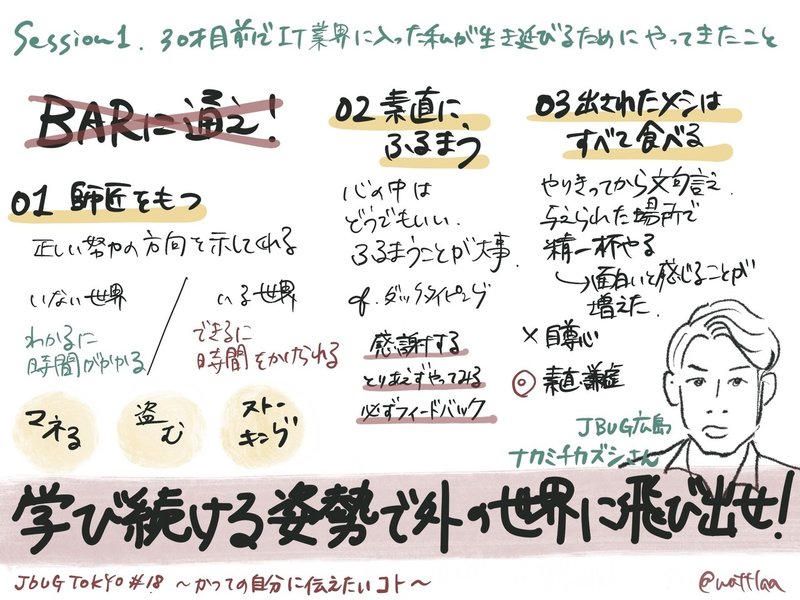 Session1. 30才目前でIT業界に入った私が生き延びるためにやってきたこと
BARに通え!
01 師匠をもつ
正しい努力の方向を示してくれる
いない世界
わかるに
時間がかかる
いる世界
できるに
時間をかけられる
マネる
盗む
ストーキング
02 素直に
ふるまう
心の中は
どうでもいい.
ふるまうことが大事.
cf. ダックタイピング
感謝する
とりあえずやってみる
必ずフィードバック
03 出されたメシは
すべて食べる
やりきってから文句言え.
与えられた場所で
精一杯やる
→面白いと感じることが
増えた.
× 自尊心
◎ 素直・謙虚
JBUG広島
ナカミチカズシさん
学び続ける姿勢で外の世界に飛び出せ!
JBUG TOKYO #18 〜かつての自分に伝えたいコト〜
@wattlaa